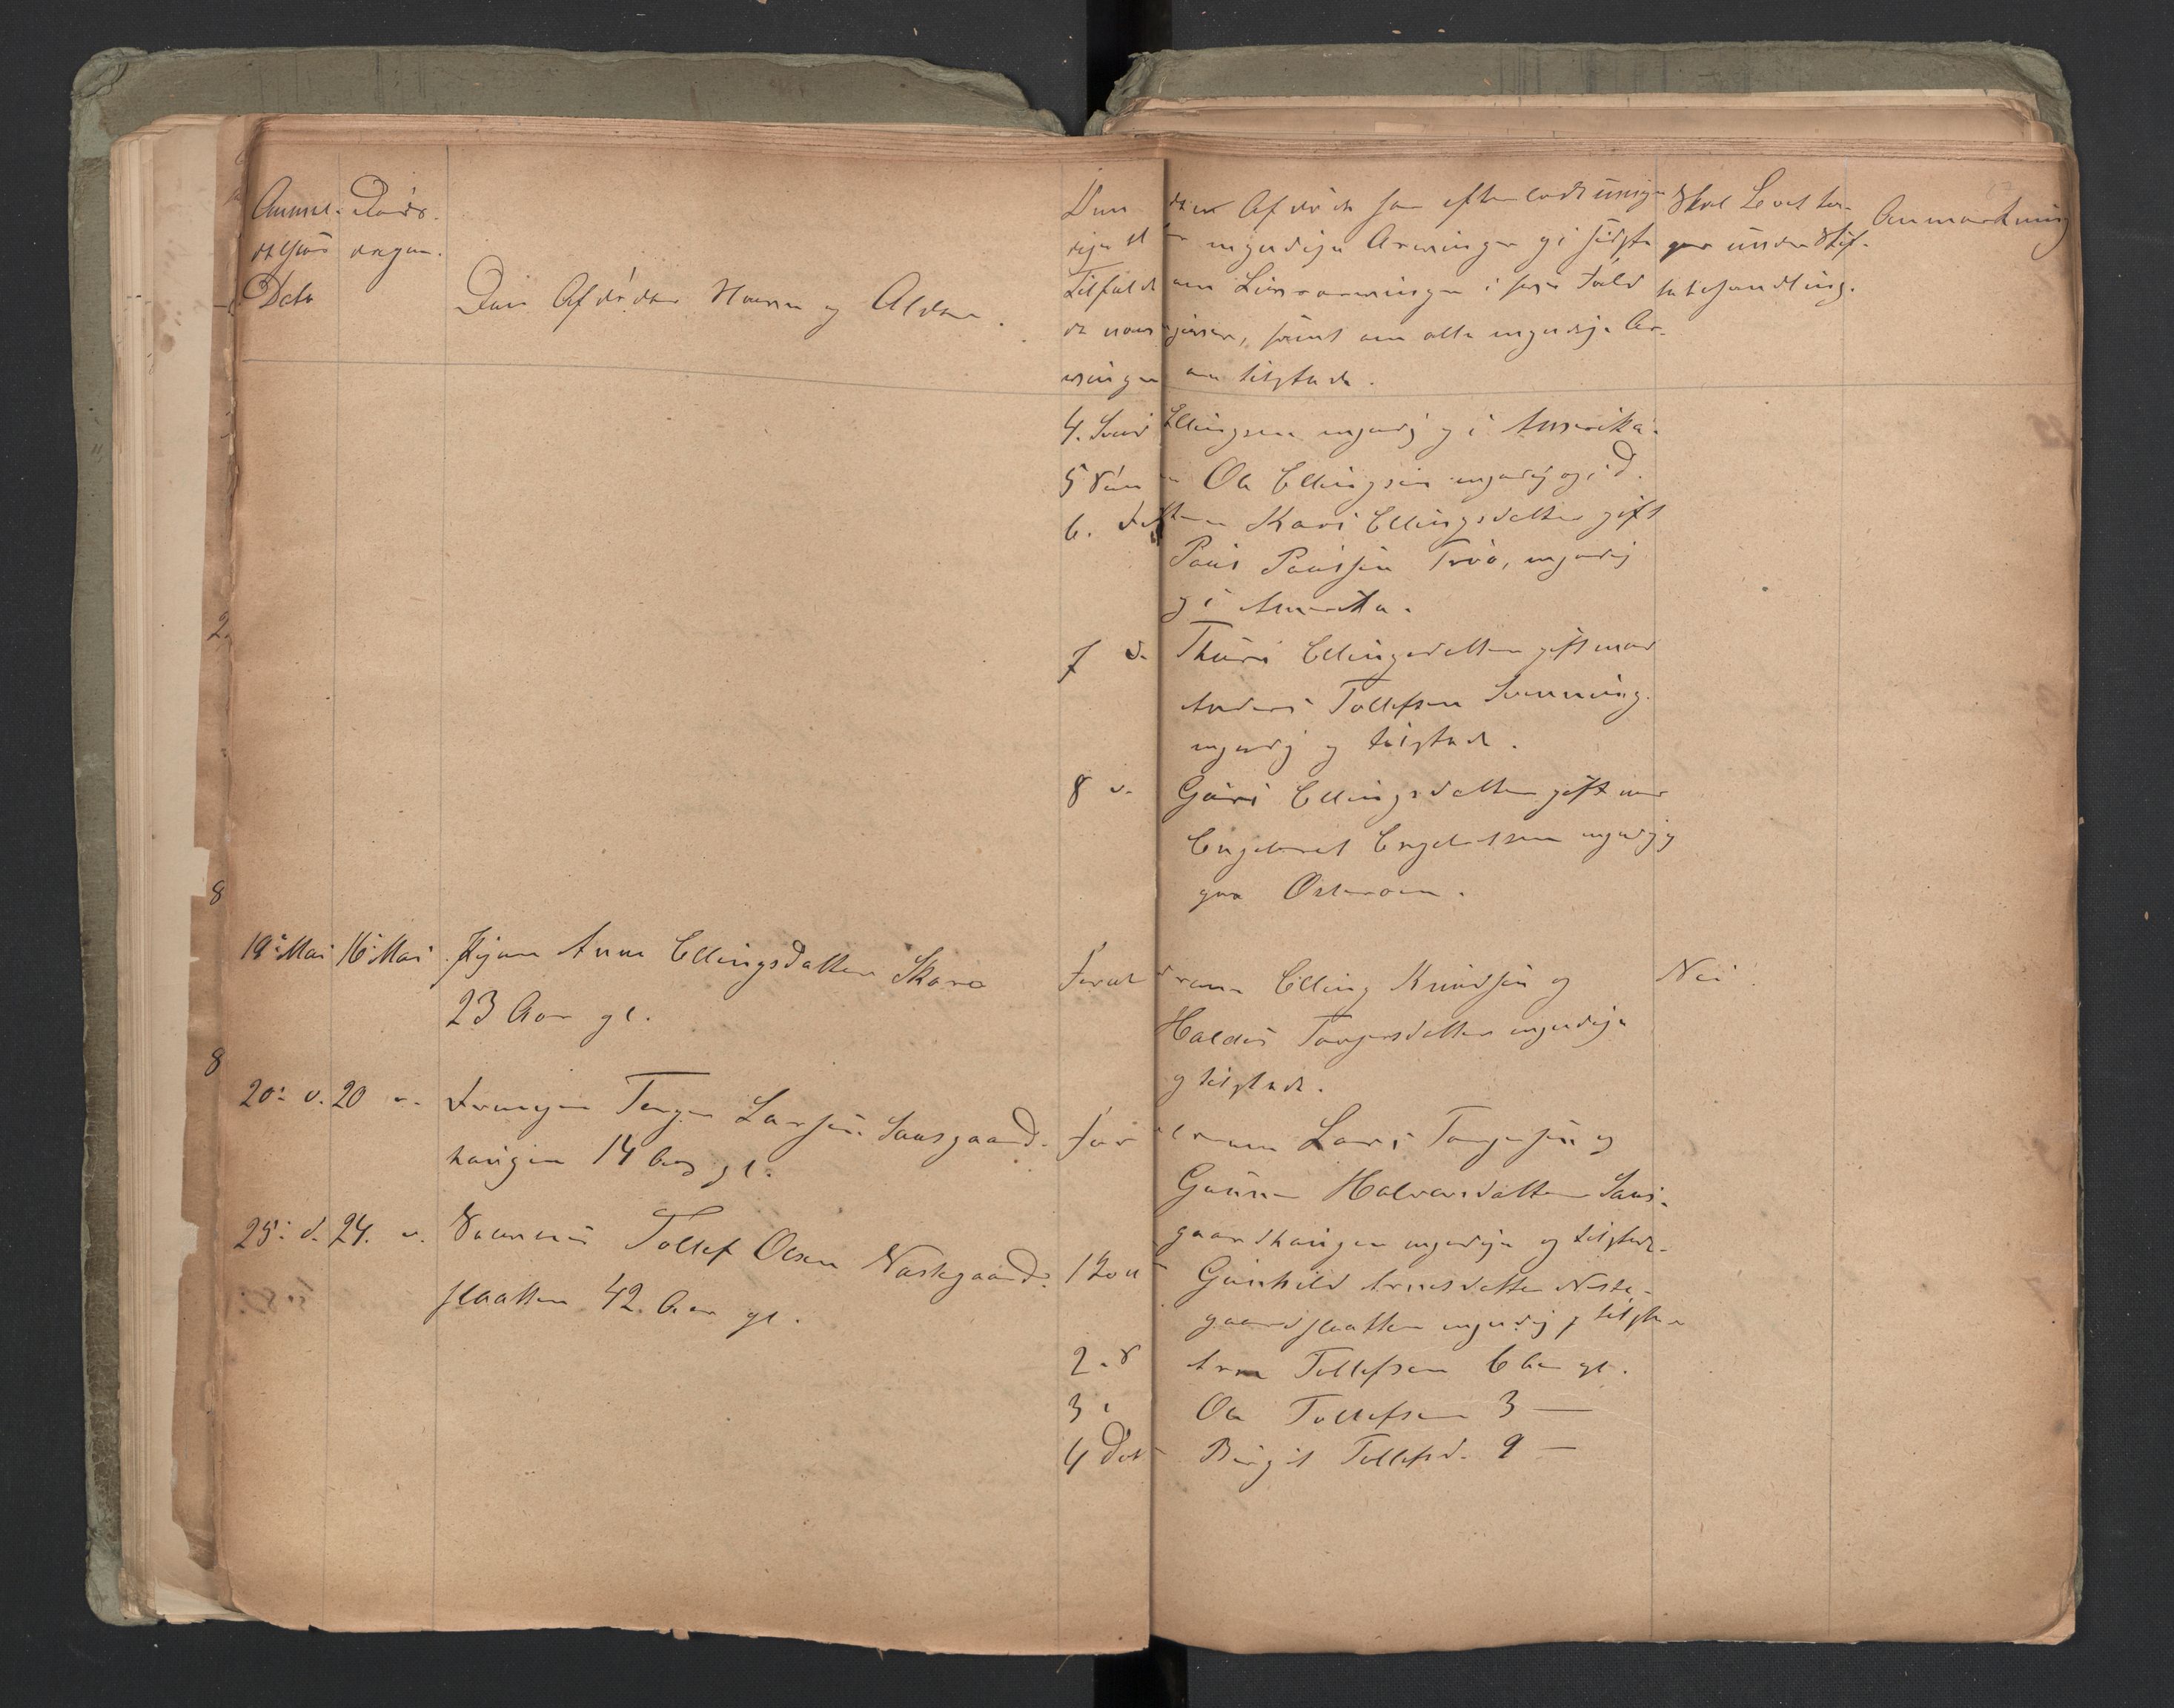 Anmel- Døds-
delses dagen.
Dato
Den Afdødes Navn og Alder.
den Afdøde har efterladt umyn-
myndige Arvinger og i sidste
Tilfælde om Livsarvinger i saa Fald
samt om alle myndige Ar-
vinger ere tilstede.
under Skif-
tebehandling.
Anmærkning
4. Svend Ellingsen myndig og i Amerika.
5 Søn Ole Ellingsen myndig og i d.
6. Datteren Kari Ellingsdatter gift
Paul Paulsen myndig
og i Amerika.
7 d. Thuri Ellingsdatter gift med
Anders Tollefsen
myndig og tilstede.
8 d. Guri Ellingsdatter gift med
Engebret Engebretsen myndig og
paa
19: Mai 16: Mai Pigen Anne Ellingsdatter Skare
23 Aar gl.
Forældrene Elling Knudsen og
Haldis Torgersdatter myndige
og tilstede.
Nei
20: d. 20 d. Drengen Torger Larsen Sausgaard-
haugen 14 Aar gl.
Forældrene Lars Torgersen og
Gunne Halvorsdatter Saus-
gaardhaugen myndige og tilstede.
25: d. 24. d. Tollef Olsen Nestegaard-
slaatten 42 Aar gl.
1 Kon Gunhild Arnesdatter Neste-
gaardslaatten myndig og tilstede
2. S Arne Tollefsen 6 Aar gl.
3 Ole Tollefsen 3 —
4 Dat Birgit Tollefsd. 9 —